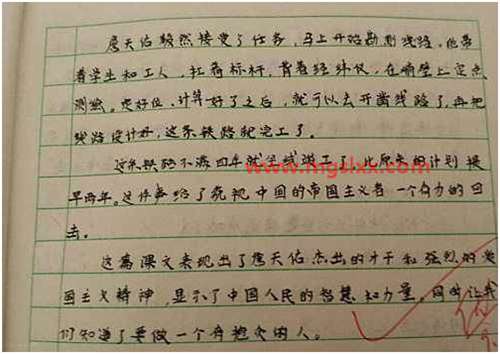 詹天佑毅然接受了任务，马上开始勘测线路。他带
着学生和工人，扛着标杆，背着经纬仪，在峭壁上定点
测绘。定好位、计算好了之后，就可以去开凿线路了，再把
线路设计好，这条铁路就完工了。
这条铁路不满四年就全线竣工了，比原来的计划提
早两年。这件事给了藐视中国的帝国主义者一个有力的回
击。
www.mgslxx.com
这篇课文表现出了詹天佑杰出的才干和强烈的爱
国主义精神，显示了中国人民的智慧和力量。同时让我
们知道了要做一个有抱负的人。